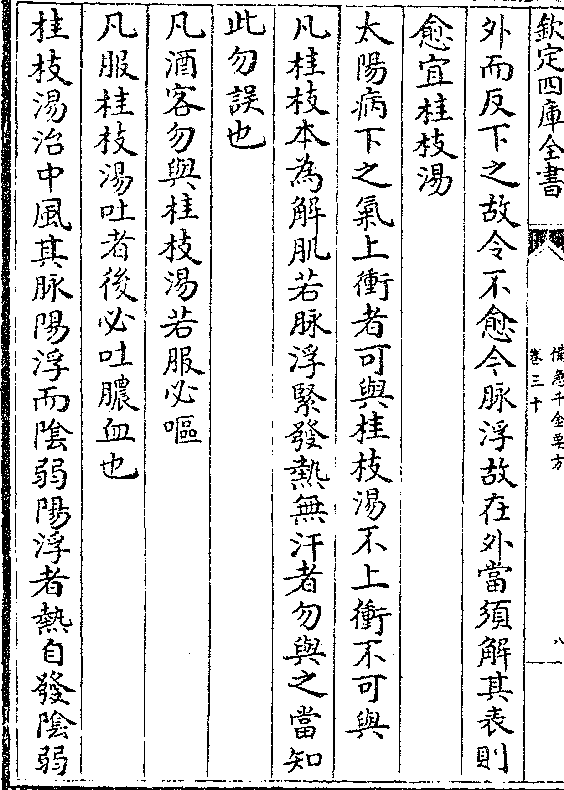 欽定四庫全書
備急千金要方
卷三十
八
外而反下之故令不愈今脉浮故在外當須解其表則
愈宜桂枝湯
太陽病下之氣上衝者可與桂枝湯不上衝不可與
凡桂枝本為解肌若脉浮緊發熱無汗者勿與之當知
此勿誤也
凡酒客勿與桂枝湯若服必嘔
凡服桂枝湯吐者後必吐膿血也
桂枝湯治中風其脉陽浮而陰弱陽浮者熱自發陰弱